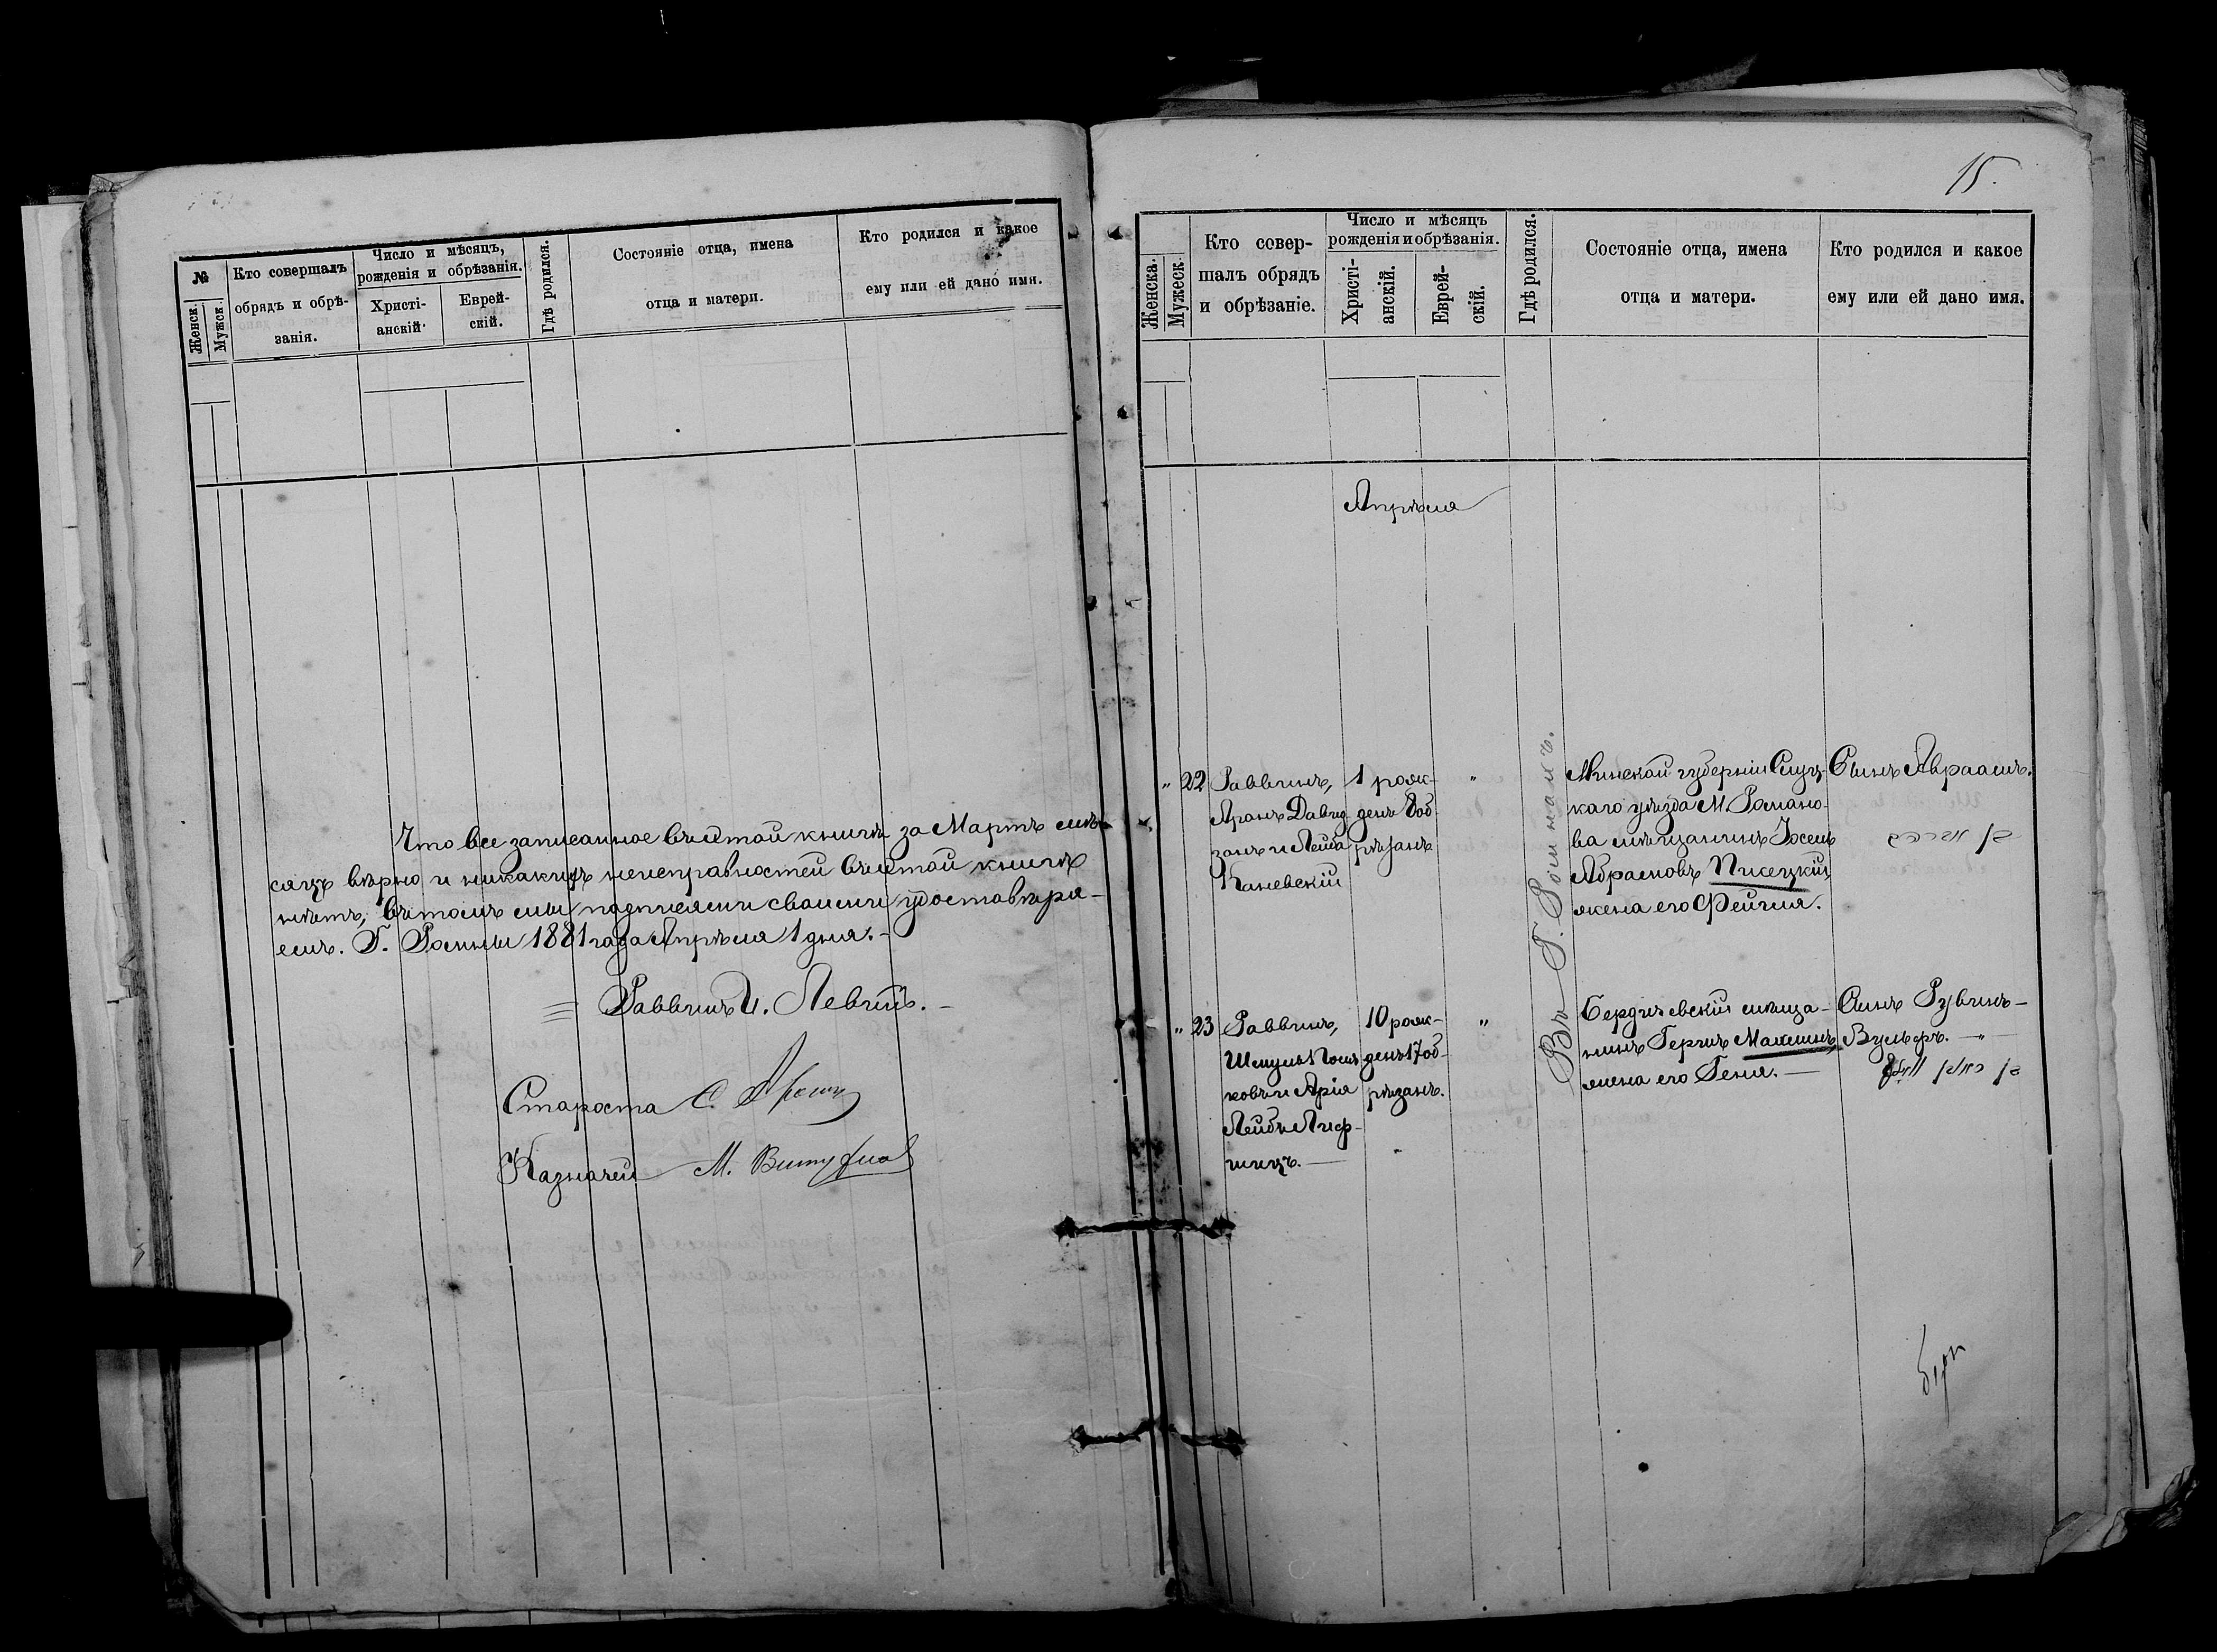 №
Женск.
Мужск.
Кто совершалъ
обрядъ и обрѣ-
занія.
Число и мѣсяцъ,
рожденія и обрѣзанія.
Христі-
анскій.
Еврей-
скій.
Гдѣ родился.
Состояніе отца, имена
отца и матери.
Кто родился и какое
ему или ей дано имя.
Что все записанное въ этой книгѣ за Мартъ мѣ-
сяцъ вѣрно и никакихъ неисправностей въ этой книгѣ
нѣтъ, въ томъ мы подписями своими удостовѣря-
емъ. Г. Ромны 1881 года Апрѣля 1 дня.-
Раввинъ И. Левинъ.
Староста С.
Казначей М.
15.
Женска.
Мужеск.
Кто совер-
шалъ обрядъ
и обрѣзаніе.
Число и мѣсяцъ
рожденія и обрѣзанія.
Христі-
анскій.
Еврей-
скій.
Гдѣ родился.
Состояніе отца, имена
отца и матери.
Кто родился и какое
ему или ей дано имя.
Апрѣля
Въ Г. Ромнахъ.
" 22
Раввинъ,
Аронъ Давид
зонъ и Лейба
Каневскій
1 рож-
денъ 8 об-
рѣзанъ
"
Минской губерніи Слуц-
каго уѣзда М Романо-
ва мѣщанинъ Іосель
Абрамовъ Писецкій,
жена его Фейгля.
Сынъ Авраамъ.
" 23
Раввинъ,
Шмуль
ковъ и Арія
Лейбъ Лиф-
шицъ.
10 рож-
денъ 17 об-
рѣзанъ.
"
Бердичевскій мѣща-
нинъ Герцъ
жена его Геня.
Сынъ Рувинъ-
Вульфъ.